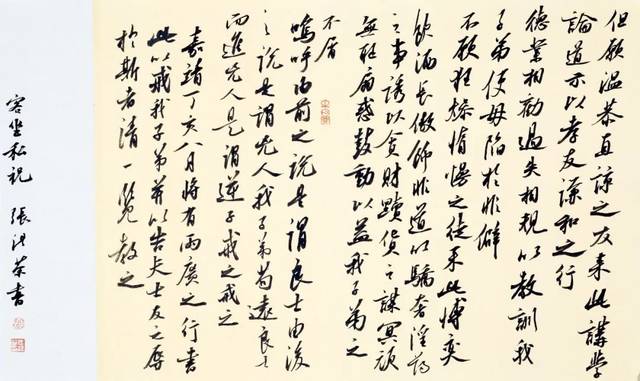 但願温恭直諒之友来此講學
論道示以孝友謙和之行
德業相勸過失相規以教訓我
子弟使毋陷於非僻
不願狂懆惰慢之徒来此博奕
飲酒長傲飾非道以驕奢淫蕩
之事誘以貪財黷貨之謀冥頑
無耻扇惑鼓動以益我子弟之
不肖
嗚呼由前之説是謂良士由後
之説是謂凶人我子弟苟遠良士
而近凶人是謂逆子戒之戒之
嘉靖丁亥八月將有兩廣之行書
此以戒我子弟并以告夫士友之辱
於斯者请一覽教之
客坐私祝 張洪榮書